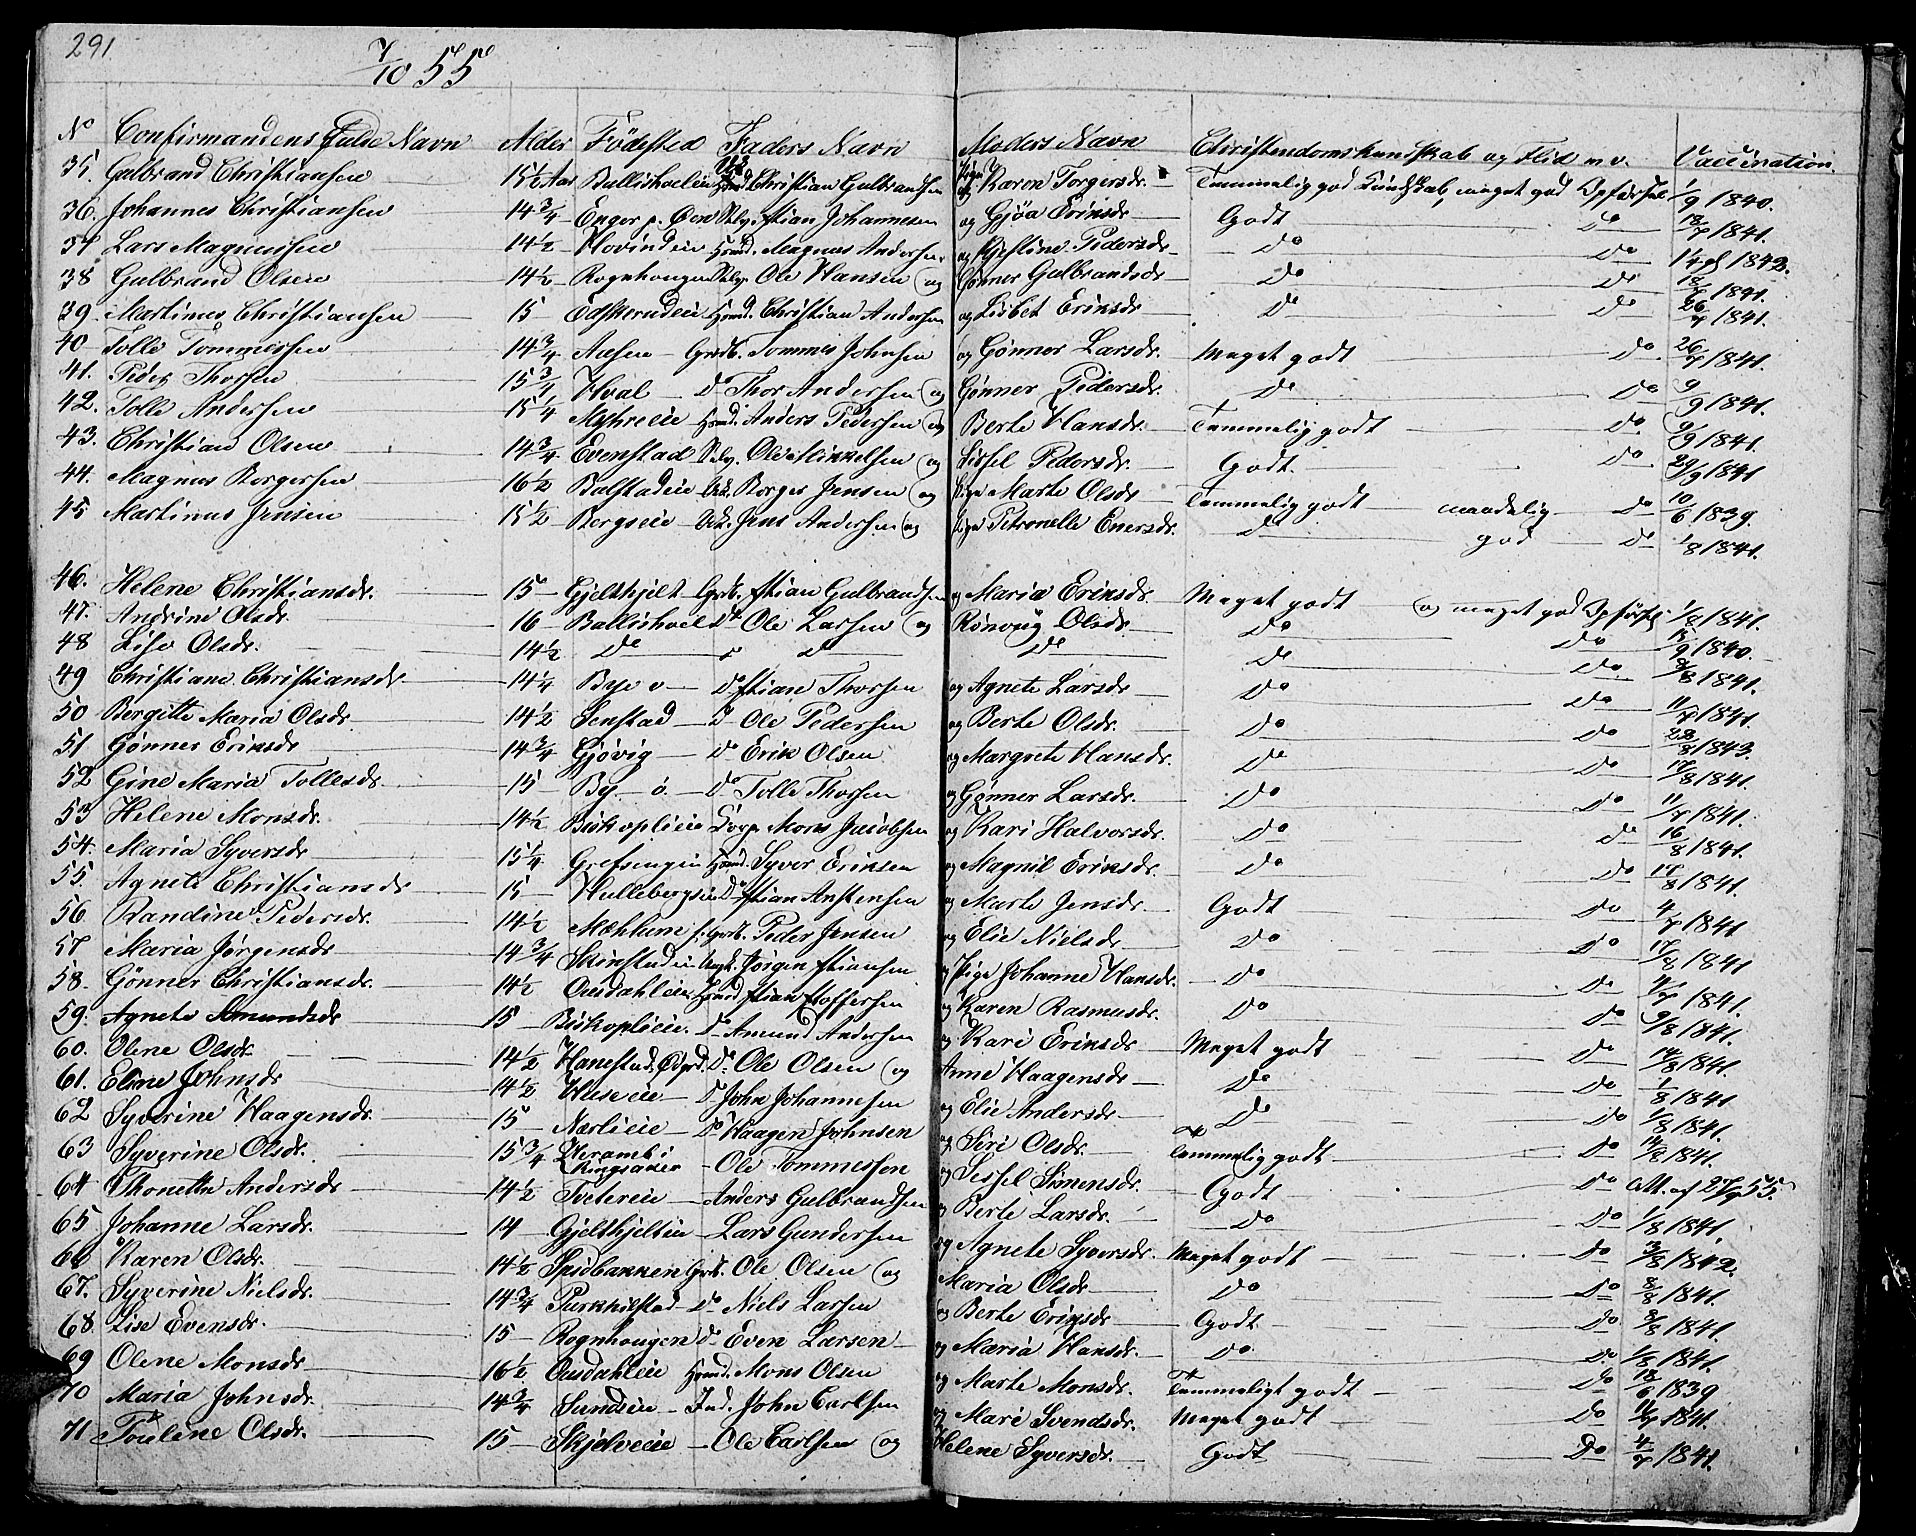 291
7/10 55
No Confirmandens fulde Navn Alder Fødested Faders Navn Moders Navn Christendomskundskab og Flid m. v. Vaccination.
35. Gulbrand Christiansen 15½ Aar Christian Gulbrandsen og Karen Torgersdr. Temmelig god Kundskab, meget god Opførsel 1/9 1840.
36. Johannes Christiansen 14¾ Enger Selv. stian Johannesen og Gjøa Eriksdr Godt Do 18/7 1841.
37 Lars Magnussen 14½ Hovindeie Hsmd. Magnus Andersen og Kjestine Pedersdr Do Do 1842.
38 Gulbrand Olsen 14½ Rognhougen Selv. Ole Hansen og Gønner Gulbrandsdr Do Do 18/7 1841.
39. Martinus Christiansen 15 Hsmd. Christian Andersen og Lisbet Eriksdr Do Do 26/7 1841.
40 Tolle Tommessen 14¾ Aasen Grdb. Tommes Johnsen og Gønner Larsdr. Meget godt Do 26/7 1841.
41. Peder Thorsen 15¾ Hval Do Thor Andersen og Gønner Pedersdr. Do Do 9/9 1841.
42. Tolle Andersen 15¼ Myhreeie Hsmd. Anders Pedersen og Berte Hansdr. Temmelig godt Do 9/9 1841.
43. Christian Olsen 14¾ Evenstad Selv. Ole Mikkelsen og Sissel Pedersdr. Godt. Do 29/9 1841
44. Magnus Borgersen 16½ Balstadeie Borger Jensen og Pige Marte Olsdr Temmelig godt maadelig Do 10/6 1839.
45 Martinus Jensen 15½ Bergseie Jens Andersen og Pige Petronelle Enersdr. Do god Do 1/8 1841.
46. Helene Christiansdr. 15 Gjelshjelt Grdb. stian Gulbrandsen og Maria Eriksdr. Meget godt og meget god Opførsel 1/8 1841.
47. Andrine Olsdr. 16 Do Ole Larsen og Rønnoug Olsdr. Do Do 15/9 1840.
48 Lise Olsdr. 14½ Do Do Do Do Do 8/8 1841.
49 Christiane Christiansdr 14¼ Bye v Do stian Thorsen og Agnete Larsdr Do Do 11/7 1841.
50 Bergitte Maria Olsdr. 14½ Senstad Do Ole Pedersen og Berte Olsdr. Do Do 23/8 1843.
51 Gønner Eriksdr 14¾ Gjøvig Do Erik Olsen og Margrete Hansdr. Do Do 17/8 1841.
52 Gine Maria Tollesdr. 15 By ø. Do Tolle Thorsen og Gønner Larsdr. Do Do 11/7 1841.
53 Helene Monsdr. 14½ Biskoplieie Mons Jacobsen og Kari Halvorsdr. Do Do 16/8 1841.
54. Maria Syversdr 15¼ Grefsengen Hsmd. Syver Eriksen og Magnil Eriksdr. Do Do 17/8 1841.
55. Agnete Christiansdr 15 Hullebergseie Do stian Anstensen og Marte Jensdr. Godt Do 4/7 1841.
56. Randine Pedersdr. 14½ Mæhlum Grdb. Peder Jensen og Elie Nielsdr. Do Do 17/8 1841
57. Maria Jørgensdr 14¾ Skinstadeie Jørgen stiansen og Pige Johanne Hansdr. Do Do 4/7 1841.
58. Gønner Christiansdr. 14½ Ousdahleie Hsmd stian stoffersen og Karen Rasmusdr. Do Do 9/8 1841.
59. Agnete Amundsdr 15 Biskoplieie. Do Amund Andersen og Kari Eriksdr Meget godt Do 14/8 1841.
60. Olene Olsdr 14½ Hanestad. Do Ole Olsen og Anne Haagensdr Do Do 1/8 1841.
61. Eline Johnsdr 14½ Huseeie Do John Johannesen og Elie Andersdr. Do Do 1/8 1841.
62 Syverine Haagensdr. 15 Nærlieie Do Haagen Johnsen og Siri Olsdr. Temmelig godt Do 14/8 1841.
63 Syverine Olsdr. 15¾ Heramb i Ringsaker Ole Tommessen og Sissel Simensdr. Godt Do Att. af 27/9 55.
64 Thonette Andersdr 14½ Tvetereie Anders Gulbrandsen og Berte Larsdr. Do Do 1/8 1841.
65 Johanne Larsdr. 14 Gjelshjelteie Lars Gundersen og Agnete Syversdr. Meget godt Do 13/8 1842.
66 Karen Olsdr. 14½ Spidbakken Grdb. Ole Olsen og Maria Olsdr. Do Do 8/8 1841.
67. Syverine Nielsdr. 14¾ Purkhilstad Do Niels Larsen og Berte Eriksdr. Godt Do 8/8 1841.
68. Lise Evensdr. 15 Rognhougen Do Even Larsen og Maria Hansdr. Do Do 1/8 1841.
69 Olene Monsdr 16½ Ousdahleie Hsmd. Mons Olsen og Marte Monsdr. Temmeligt godt Do 18/6 1839
70 Maria Johnsdr. 14¾ Sundseie Ind. John Carlsen og Mari Svendsdr. Meget godt Do 11/7 1841.
71 Torelene Olsdr. 15 Skjelveeie Ole Carlsen og Helene Syversdr. Godt Do 4/7 1841.